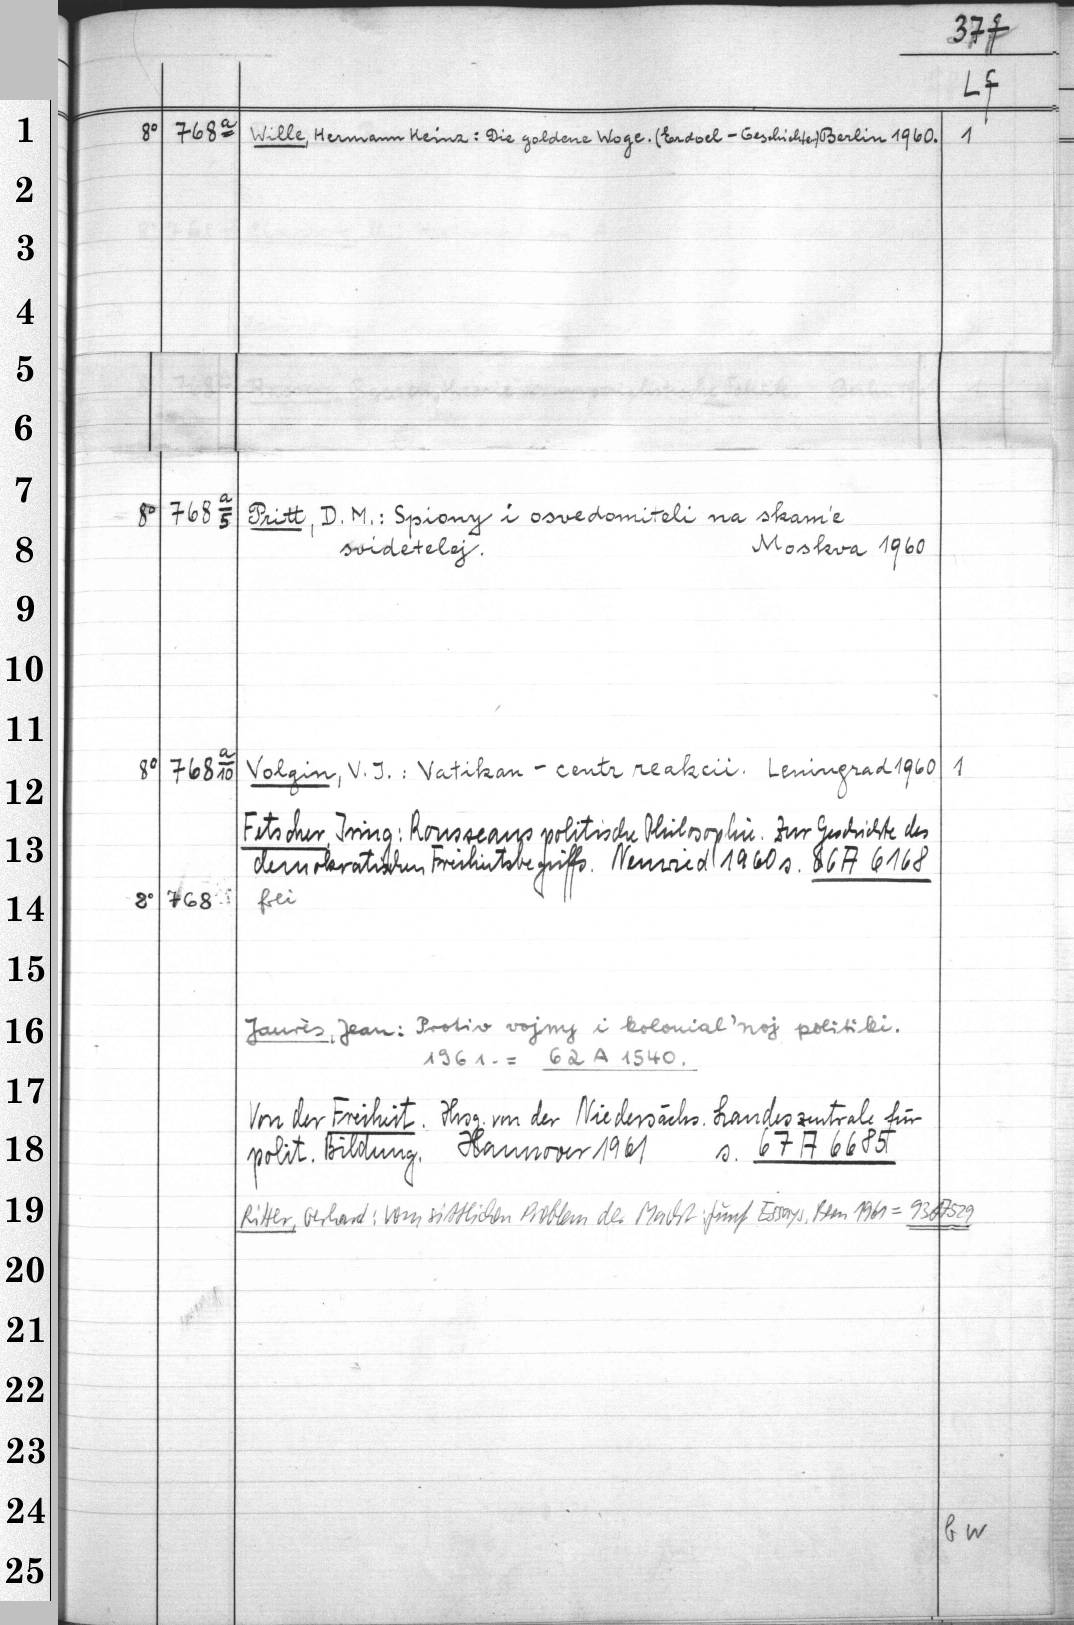 37f
Lf
1
8° 768 a Wille, Hermann Heinz: Die goldene Woge. (Erdoel - Geschichte) Berlin 1960. 1
2
3
4
5
6
7
8° 768 a/5 Pritt, D. M.: Spiony i osvedomiteli na skam'e
8 svidetelej. Moskva 1960
9
10
11
8° 768 a/10 Volgin, V. I.: Vatikan - centr reakcii. Leningrad 1960 1
12
Fetscher, Iring: Rousseaus politische Philosophie. Zur Geschichte des
13 demokratischen Freiheitsbegriffs. Neuwied 1960 s. 86 A 6168
14 8° 768 frei
15
16 Jaurès, Jean: Protiv vojny i kolonial'noj politiki.
1961. = 62 A 1540.
17
Von der Freiheit. Hrsg. von der Niedersächs. Landeszentrale für
18 polit. Bildung. Hannover 1961 s. 67 A 6685
19 Ritter, Gerhard: Vom sittlichen Problem der Macht: fünf Essays, Bern 1961 = 93 A 7529
20
21
22
23
24
b w
25